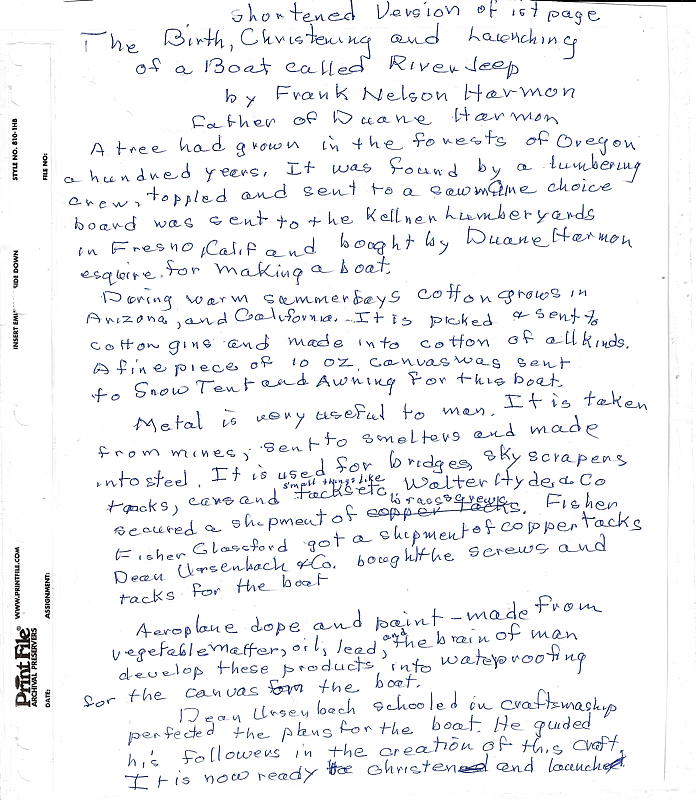 Shortened Version of 1st page
The Birth, Christening and Launching
of a Boat called River Jeep
by Frank Nelson Harmon
Father of Duane Harmon
A tree had grown in the forests of Oregon
a hundred years. It was found by a lumbering
crew, toppled and sent to a sawm One choice
board was sent to the Kellner Lumberyards
in Fresno, Calif and bought by Duane Harmon
esquire, for making a boat.
During warm summer days cotton grows in
Arizona, and California. It is picked & sent to
cotton gins and made into cotton of all kinds.
A fine piece of 10 oz. canvas was sent
to Snow Tent and Awning for this boat.
Metal is very useful to man. It is taken
from mines, sent to smelters and made
into steel. It is used for bridges, sky scrapers
tracks, cars and small things like tacks etc. Walter Hyde & Co
secured a shipment of copper tacks brass screws. Fisher
Fisher Glassford got a shipment of copper tacks
Dean Ursenbach & Co. bought the screws and
tacks for the boat
Aeroplane dope and paint - made from
vegetable matter, oil, lead, and the brain of man
develop these products into waterproofing
for the canvas the boat.
Dean Ursenbach schooled in craftsmaship
perfected the plans for the boat. He guided
his followers in the creation of this craft.
It is now ready christened and launched
STYLE NO. 810-1HB
FILE NO:
INSERT SIDE DOWN
Print File®
ARCHIVAL PRESERVERS
WWW.PRINTFILE.COM
DATE:
ASSIGNMENT: